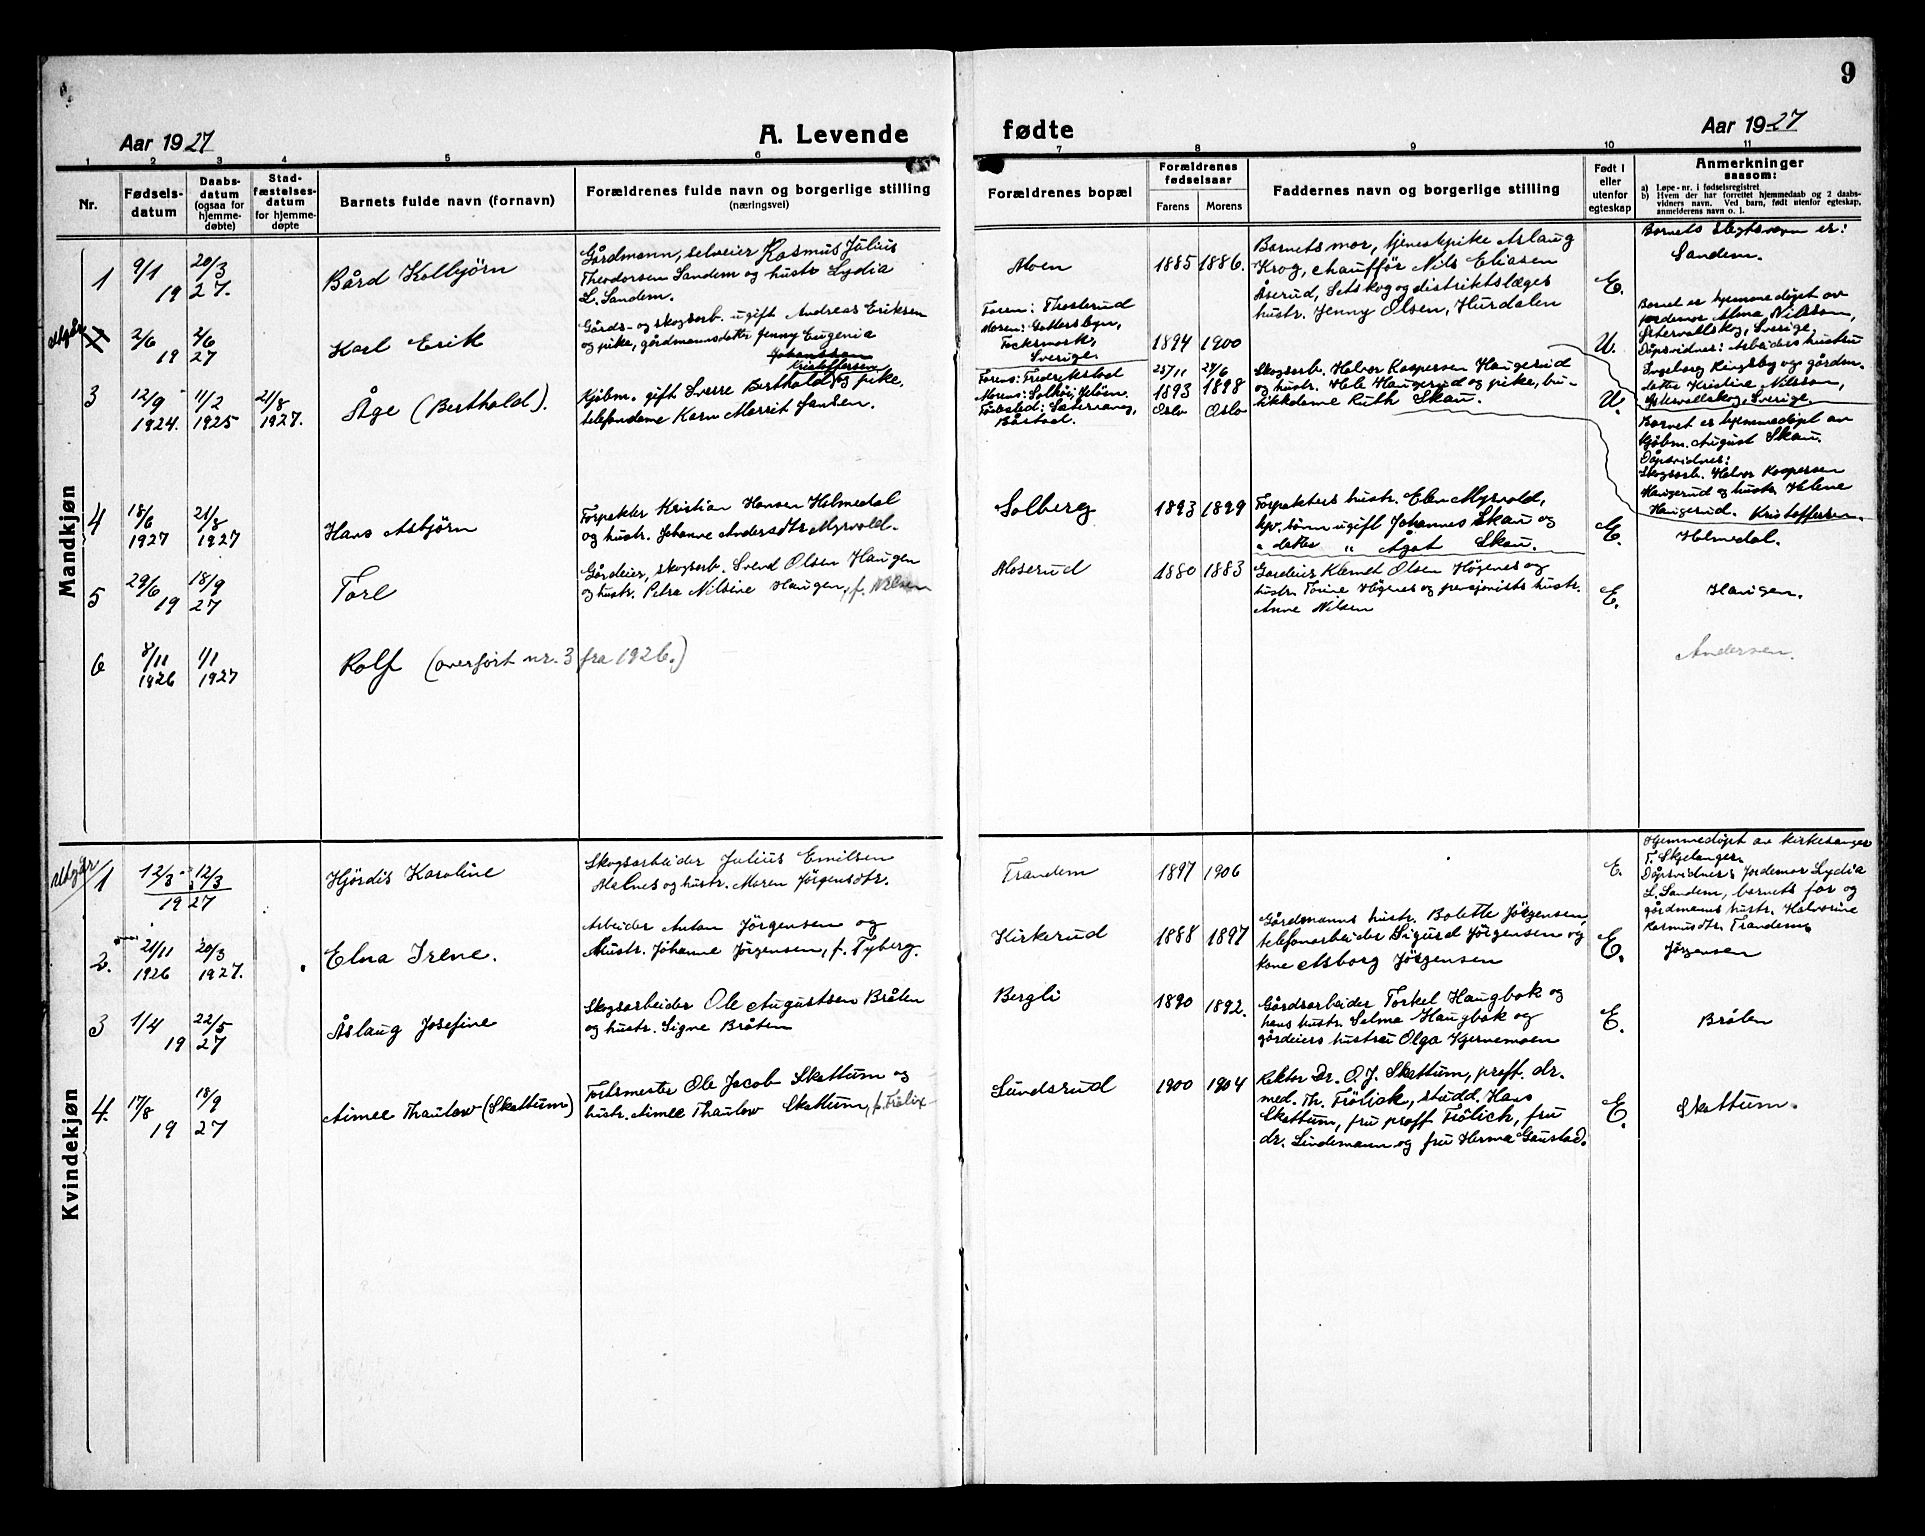 9
Aar 1927
A. Levende fødte
Aar 1927
1 2 3 4 5 6 7 8 9 10 11
Nr.
Fødsels-
datum
Daabs-
datum
(ogsaa for
hjemme-
døbte)
Stad-
fæstelses-
datum
for hjemme-
døpte
Barnets fulde navn (fornavn)
Forældrenes fulde navn og borgerlige stilling
(næringsvei)
Forældrenes bopæl
Forældrenes
fødselsaar
Farens Morens
Faddernes navn og borgerlige stilling
Født i
eller
utenfor
egteskap
Anmerkninger
saasom:
a) Løpe-nr. i fødselsregistret
b) Hvem der har forrettet hjemmedaab og 2 daabs-
vidners navn. Ved barn, født utenfor egteskap,
anmelderens navn o. l.
Mandkjøn
1
9/1
19
20/3
27.
Bård Kolbjørn
Gårdmann, selveier Rasmus Julius
Theodorsen Sandem og hustr. Lydia
L. Sandem.
Moen
1885 1886.
Barnets mor, tjenestepike Aslaug
Krog, chauffør Nils Eliasen
Åserud, Setskog og distriktslæges
hustr. Jenny Olsen, Hurdalen
E.
Barnets slegtsnavn er:
Sandem.
2/6
19
2/6
27
Karl Erik
Gårds- og skogsarb. ugift Andreas Eriksen
og pike, gårdmannsdatter Jenny Eugenia
Johanssen
Kristoffersen
Faren: Throterud
Moren:
Sverige.
1894 1900
U.
Barnet er hjemmedøpt av
jordemor Alma Nilsson,
Östervallskog, Sverige,
Dåpsvidner: Arbeiderhustru
Ingeborg Ringsby og gårdm.
datter Kristine Nilsson,
Östervallskog, Sverige.
3
12/9
1924.
11/2
1925
21/8
1927.
Åge (Berthold).
Kjøbm. gift Sverre Berthold og pike,
telefondame Karn Marrit Jansen.
Farens: Frederikstad
Fødested:
Båstad.
25/11 24/6
1893 1898
Oslo Oslo
Skogsarb. Halvor Kaspersen Haugerud
og hustr. Hele Haugerud og pike, bu-
tikkdame Ruth Skau.
U.
Barnet er hjemmedøpt av
Kjøbm. August Skau.
Dåpsvidner:
Skogsarb. Halvor Kaspersen
Haugerud og hustr. Helene
Haugerud. Kristoffersen.
4
18/6
1927
21/8
1927
Hans Asbjørn
Forpakter Kristian Hansen Helmedal
og hustr. Johanne Andersdtr Myrvold.
Solberg
1893 1899
Forpakters hustr. Elen Myrvold,
gbr. sønn ugift Johannes Skau og
" datter " Ågot Skau.
E.
Helmedal.
5
29/6
19
18/9
27
Tore
Gårdeier, skogsarb. Svend Olsen Haugen
og hustr. Petra Nilsine Haugen, f. Nilsen
Moserud
1880 1883
Gårdeier Klemet Olsen Høgenes og
hustr. Torine Høgnes og pensjonists hustr.
Anne Nilsen
E.
Haugen.
6
8/11
1926
1/1
1927
Rolf (overført nr. 3 fra 1926.)
Andersen.
Kvindekjøn
1
12/3
19
12/3
27
Hjördis Karoline
Skogsarbeider Julius Emilsen
Malnes og hustr. Maren Jørgensdtr.
Trandem
1897 1906
E.
Hjemmedøpt av kirkesanger
T. Skjelanger.
Dåpsvidner: Jordemor Lydia
L. Sandem, barnets far og
gårdmanns hustr. Halvorine
Rasmusdtr. Trandem.
2.
21/11
1926
20/3
1927.
Elna Irene.
Arbeider Anton Jörgensen og
hustr. Johanne Jörgensen, f. Tyberg.
Kirkerud
1888 1897
Gårdmanns hustr. Bolette Jörgensen,
telefonarbeider Sigurd Jörgensen og
kone Asborg Jörgensen
E.
Jørgensen
3
1/4
19
22/5
27
Åslaug Josefine
Skogsarbeider Ole Augustsen Bråten
og hustr. Signe Bråten
Bergli
1890 1892.
Gårdsarbeider Torkel Haugbak og
hans hustr. Selma Haugbak og
gårdeiers hustru Olga Kjernemoen
E.
Bråten
4.
17/8
19
18/9
27
Aimee Thaulow (Skattum)
Forstmester Ole Jacob Skattum og
hustr. Aimee Thaulow Skattum,
Sundsrud
1900 1904
Rektor Dr. O. J. Skattum, proff. dr.
med. Th. Frölick, studd. Hans
Skattum, fru proff Frölich, fru
dr. Lindemann og fru Herma Gaustad.
E.
Skattum.